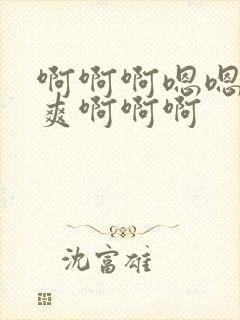 啊啊啊嗯嗯
爽啊啊啊
沈富雄